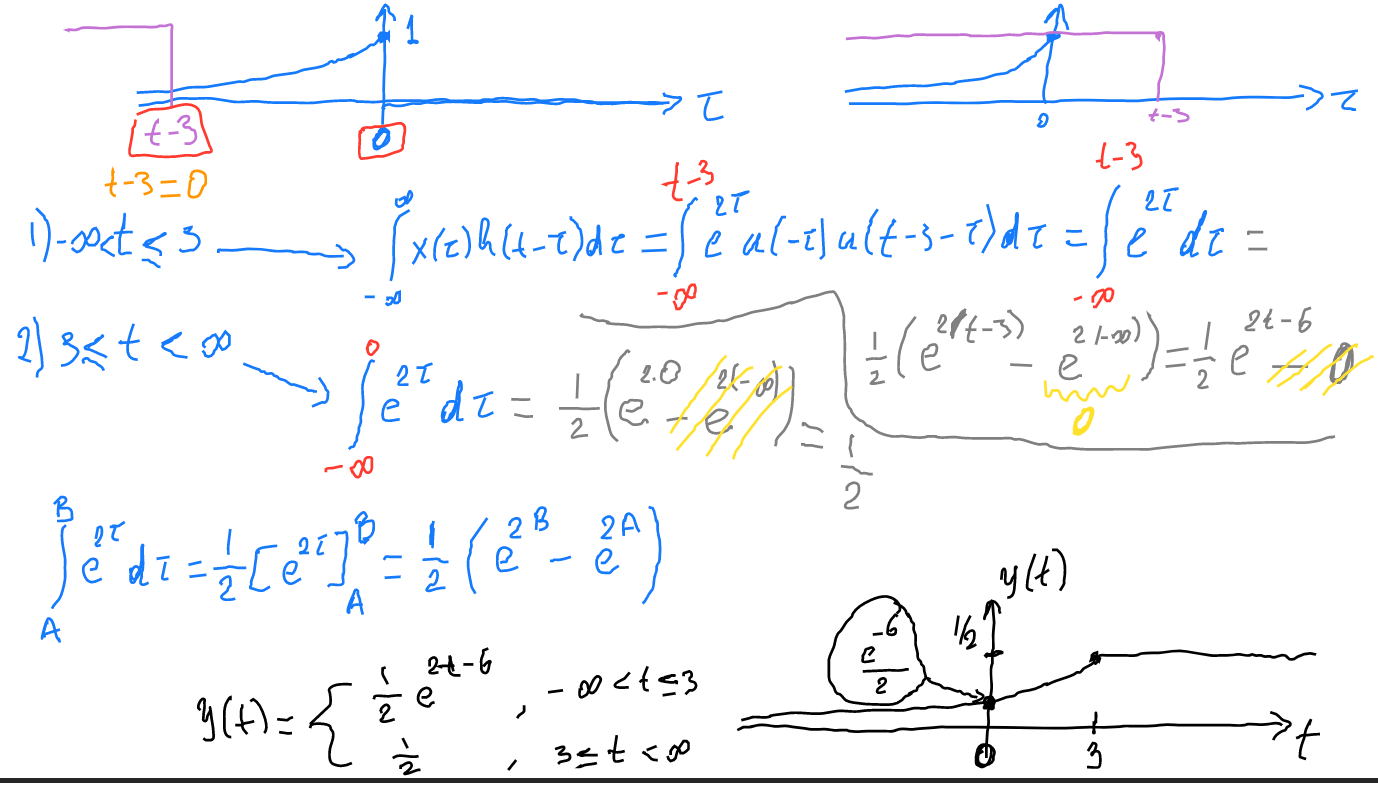 1
τ
t-3
0
t-3=0
0
t-3
τ
1) -∞<t≤3 → ∫_{-∞}^{∞} x(τ)h(t-τ)dτ = ∫_{-∞}^{t-3} e^{2τ} u(-τ) u(t-3-τ)dτ = ∫_{-∞}^{t-3} e^{2τ} dτ =
1/2 (e^{2(t-3)} - e^{2(-∞)}) = 1/2 e^{2t-6} - 0
0
2) 3≤t<∞ → ∫_{-∞}^{0} e^{2τ} dτ = 1/2 (e^{2.0} - e^{2(-∞)}) = 1/2
∫_{A}^{B} e^{2τ} dτ = 1/2 [e^{2τ}]_{A}^{B} = 1/2 (e^{2B} - e^{2A})
y(t) = { 1/2 e^{2t-6} , -∞<t≤3
1/2 , 3≤t<∞
y(t)
1/2
e^{-6}/2
0
3
t